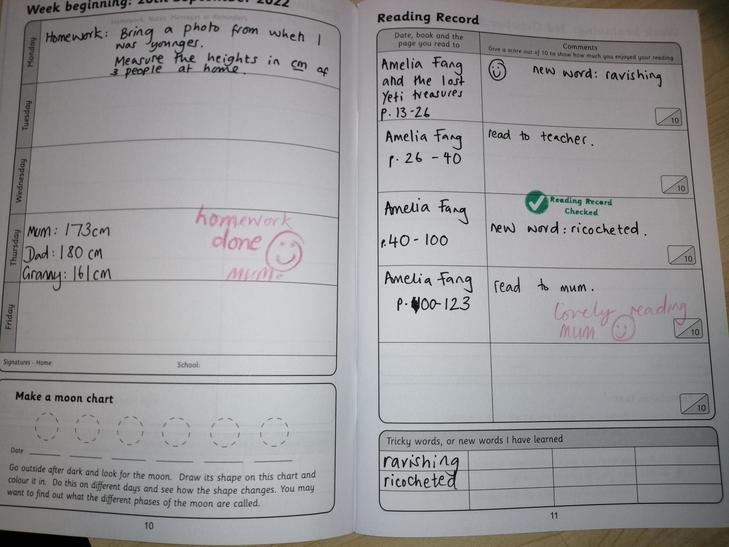 Week beginning: 20th September 2022
Homework, Notes, Messages or Reminders
Monday
Homework: Bring a photo from when I
was younger.
Measure the heights in cm of
3 people at home.
Tuesday
Wednesday
Thursday
Mum: 173cm
Dad: 180 cm
Granny: 161cm
homework
done
mum.
Friday
Signatures - Home:
School:
Make a moon chart
Date
Go outside after dark and look for the moon. Draw its shape on this chart and
colour it in. Do this on different days and see how the shape changes. You may
want to find out what the different phases of the moon are called.
10
Reading Record
Date, book and the
page you read to
Comments
Give a score out of 10 to show how much you enjoyed your reading
Amelia Fang
and the lost
Yeti treasures
p. 13-26
new word: ravishing
10
Amelia Fang
p. 26 - 40
read to teacher.
10
Amelia Fang
p.40 - 100
Reading Record
Checked
new word: ricocheted.
10
Amelia Fang
p. 100-123
read to mum.
lovely reading
mum
10
10
Tricky words, or new words I have learned
ravishing
ricocheted
11